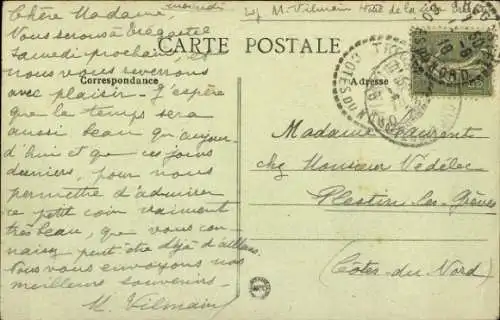 mercredi
chez M. Vilmain Hôtel de la
Chère Madame,
Nous serons à Trégastel
samedi prochain, et
nous vous reverrons
avec plaisir. J'espère
que le temps sera
aussi beau qu'aujour-
d'hui et que ces jours
derniers, pour nous
permettre d'admirer
ce petit coin vraiment
très beau, que vous con-
naissez peut-être déjà d'ailleurs.
Nous vous envoyons nos
meilleurs souvenirs.
M. Vilmain
CARTE POSTALE
Correspondance
Adresse
CÔTES DU NORD
Madame Laurent
chez Monsieur Védélec
Plestin-les-Grèves
(Côtes-du-Nord)